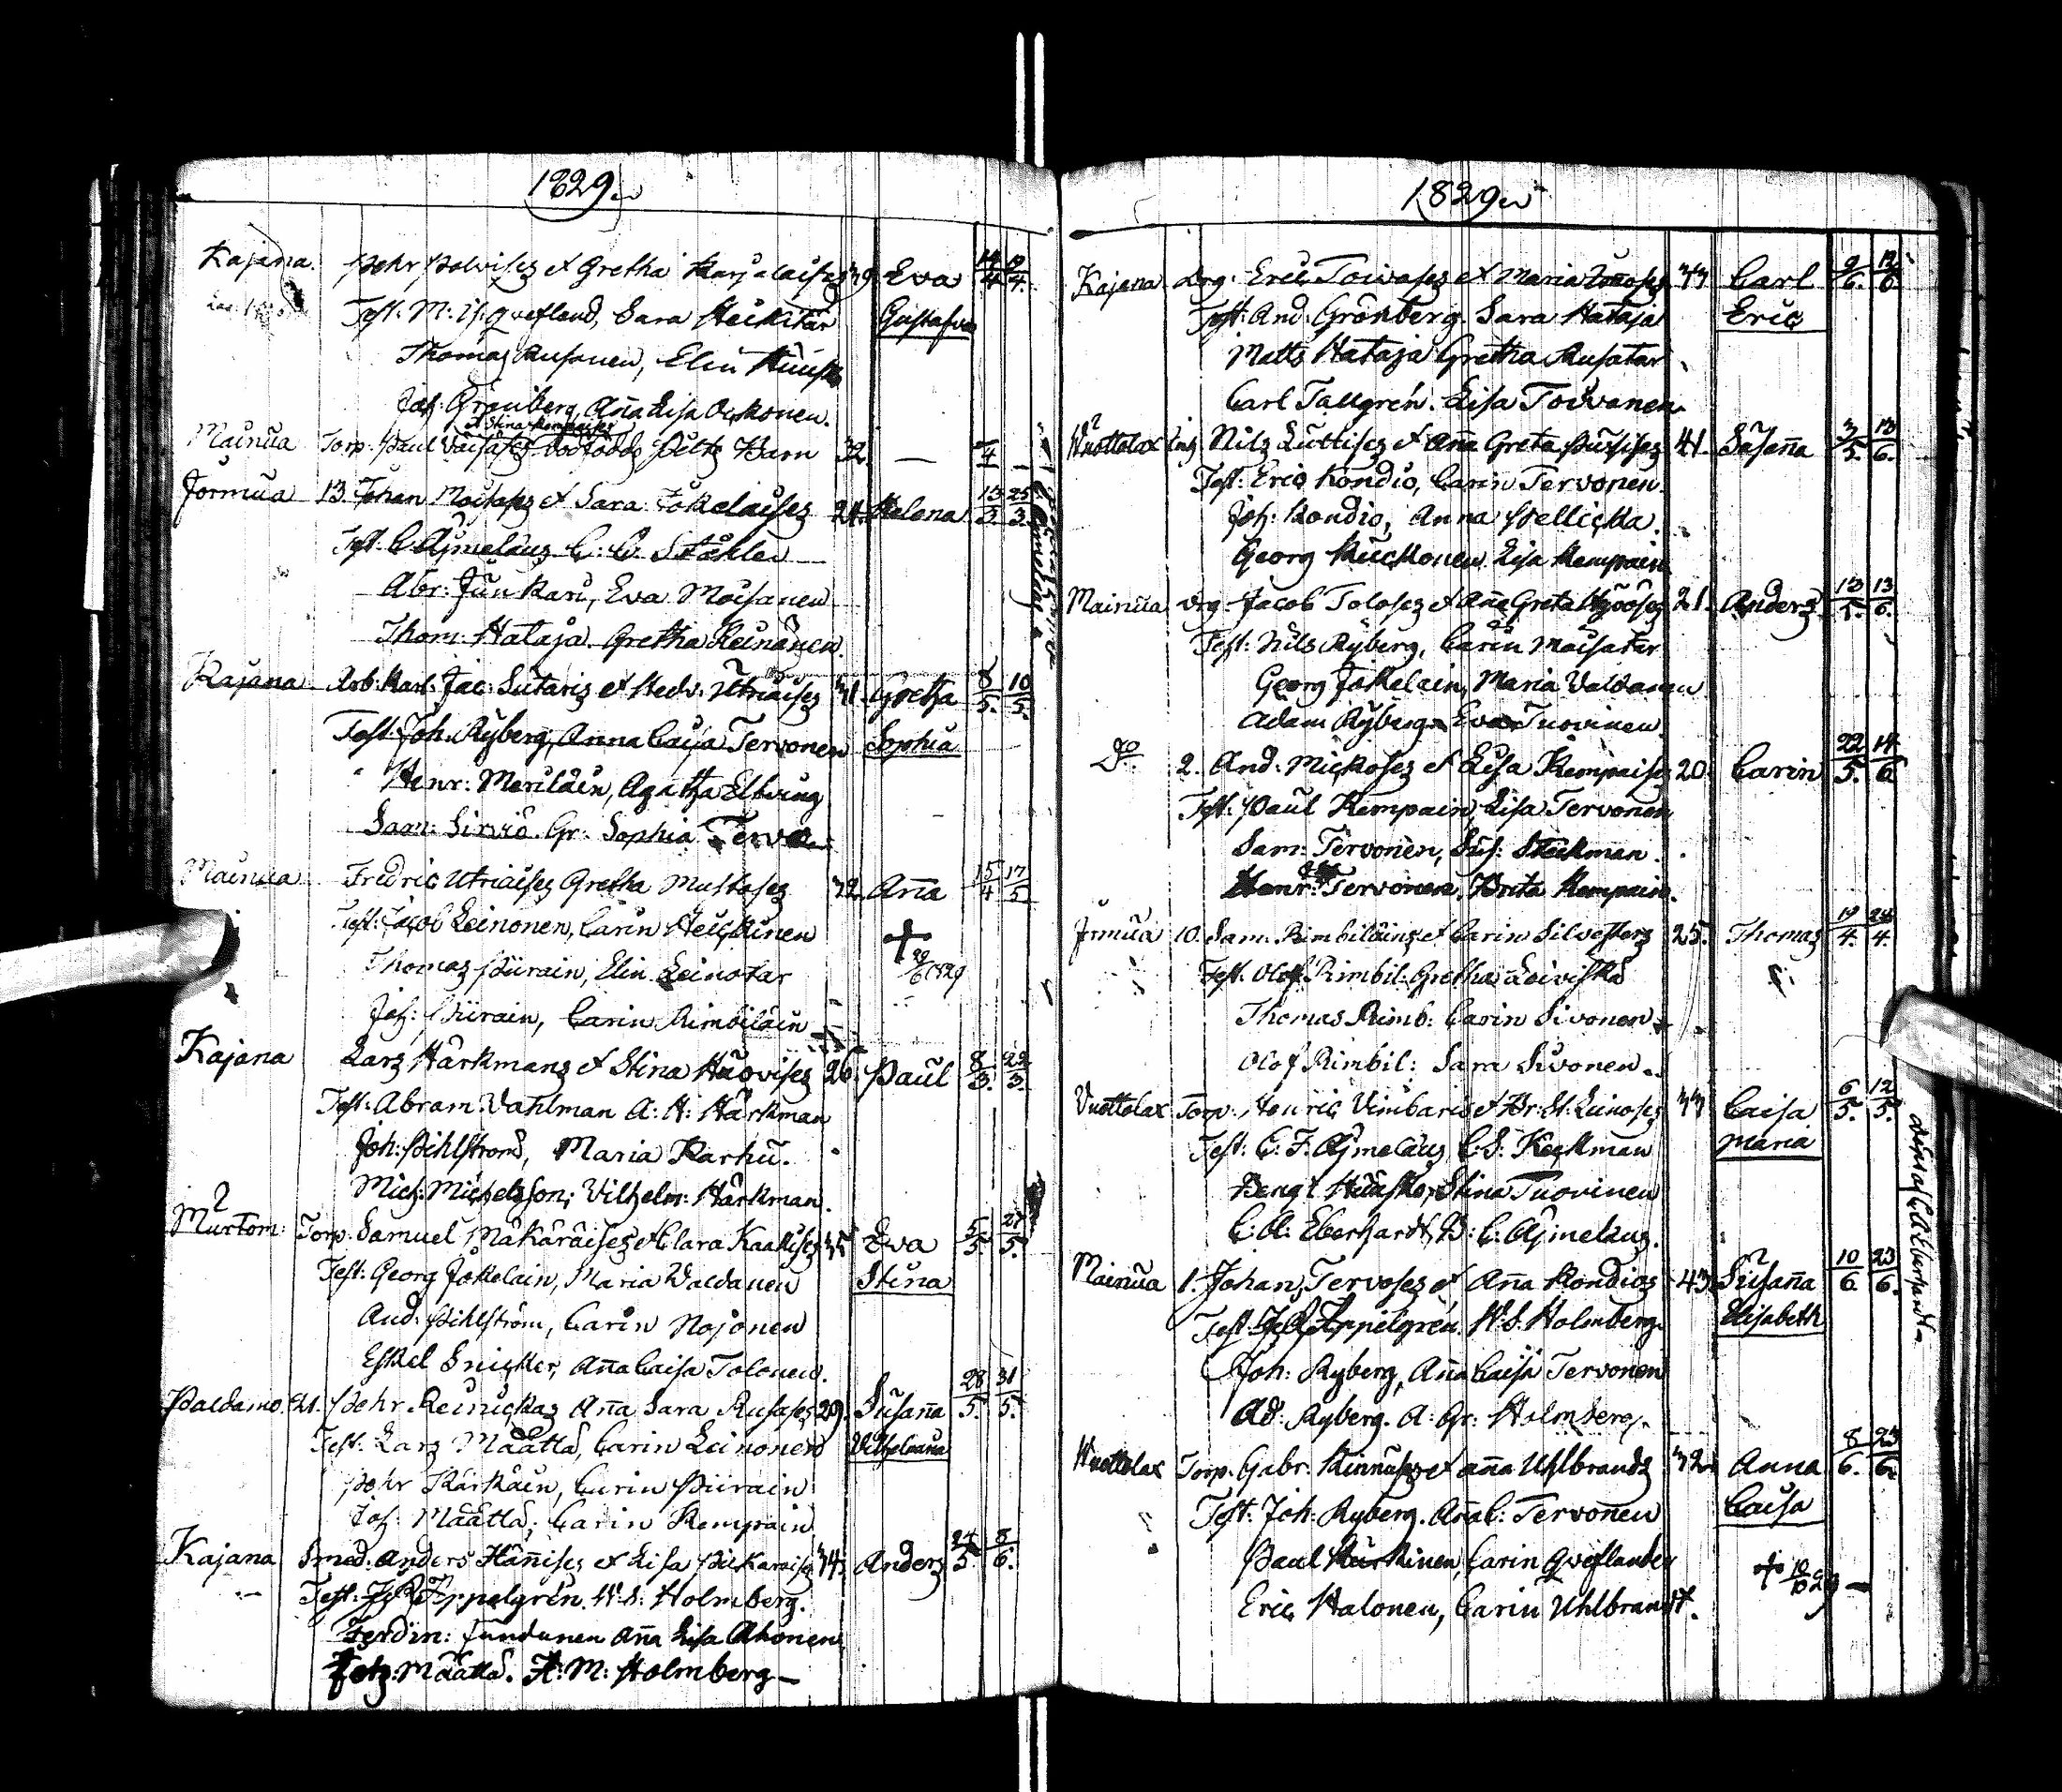 1829
Kajana. Pehr Polvisez et Gretha Karjalaisez 39 Eva 14/4 19/4
Test: M: Is: Qveflund, Sara Heikitar Gustafva
Thomas Rusanen, Elin Huusko
Joh: Grönberg, Anna Lisa Ockonen.
Mainua Torp. Paul Väisäsez et Stina Kempaises dödfödde Pilts Barn 32. — /4 —
Jormua 13. Johan Moisases et Sara Jokelaisez 24. Helena 13/3 25/3
Test. C. Ajmelæus C. C. Ståhle
Abr: Junkari, Eva Moisanen
Thom: Hataja. Gretha Keinänen.
Kajana Arb. Karl. Jac: Sutaris et Hedv: Utriaisez 41. Gretha 8/5. 10/5.
Test: Joh. Ryberg, Anna Caisa Tervonen Sophia
Henr: Meriläin, Agatha Elfving
Sam: Sirviö. Gr: Sophia Tervo
Mainua Fredric Utriaisez Gretha Mustosez 32. Aña 15/4 17/5
Test: Jacob Leinonen, Carin Heickinen +
Thomas Piirain, Elin Leinotar 29/6 1829
Joh: Piirain, Carin Rimbiläin
Kajana Lars Härkmans et Stina Huovisez 26. Paul 8/3. 22/3.
Test: Abram Vahlman A: H: Härkman
Joh: Pihlström, Maria Karhu.
Mich: Michelsson; Vilhelm: Härkman.
2
Murtom: Torp. Samuel Mäkäräisez et Clara Kaakisez 35 Eva 5/5. 27/5.
Test: Georg Jokelain, Maria Valdanen Stina
And: Pihlström, Carin Nojonen
Eskel Snicker, Aña Caisa Tolonen.
Paldamo. 21. Pehr Reinickas Aña Sara Rusases 29. Susaña 28/5. 31/5.
Test: Lars Määttä, Carin Leinonen Vilhelmina
Pehr Kärkäin, Carin Piirain
Joh: Määttä; Carin Kempain
Kajana Smed. Anders Häñisez et Lisa Pickaraisez 34. Anders 24/5 8/6.
Test: Appelgrén. H: S: Holmberg.
Ferdin: Jundunen Aña Lisa Ahonen
Määttä. H: M: Holmberg —
1829
Kajana Drg. Eric Toivosez et Maria 33 Carl 9/6. 12/6
Test: And: Grönberg. Sara Hataja Eric
Matts Hataja Gretha Rusatar
Carl Tallgrén. Lisa Toivanen
2
Vuottolax Nils Luttisez et Aña Greta 41. Susaña 3/5. 13/6.
Test: Eric Kondio, Carin Tervonen.
Joh: Kondio, Anna Pellicka.
Georg Kuckonen Lisa Kempain
Mainua Drg. Jacob Tolosez et Aña Greta 21. Anders 13/5. 13/6.
Test: Nils Ryberg, Carin Moisatar
Georg Jokelain, Maria Valdanen
Adam Ryberg. Eva Tuovinen.
Do 2. And: Mickosez et Lisa Kempaisez 20. Carin 22/5. 14/6
Test: Paul Kempain, Lisa Tervonen
Sam: Tervonen, Sus: Stäckman.
Henr: Tervonen, Brita Kempain.
Jrmua 10. Sam: Rimbiläins et Carin Silvesters 25. Thomas 19/4. 24/4.
Test: Olof Rimbil: Gretha Leiviskä
Thomas Rimb: Carin Sivonen
Olof Rimbil: Sara Sivonen.
Vuottolax Torp: Henric Vimbaris et Br: St: Leinosez 33 Caisa 6/5. 12/5.
Test: C. F. Ajmelæus, C: S: Keckman Maria
Bengt Huusko, Stina Tuovinen
C: A: Eberhardt, B: C: Ajmelæus.
Mainua 1. Johan Tervosez et Aña Kondios 43. Susaña 10/6. 23/6.
Test: Appelgrén. H: S: Holmberg. Elisabeth
Joh: Ryberg, Aña Caisa Tervonen
Ad: Ryberg. A: Gr: Holmberg.
Vuottolax Torp. Gabr: Kinnusez et Aña Uhlbrands 32. Anna 8/6. 23/6.
Test: Joh: Ryberg. Aña C: Tervonen Caisa
Paul Kurkinen, Carin Qveflander + 10/10 29
Eric Halonen, Carin Uhlbrandt.